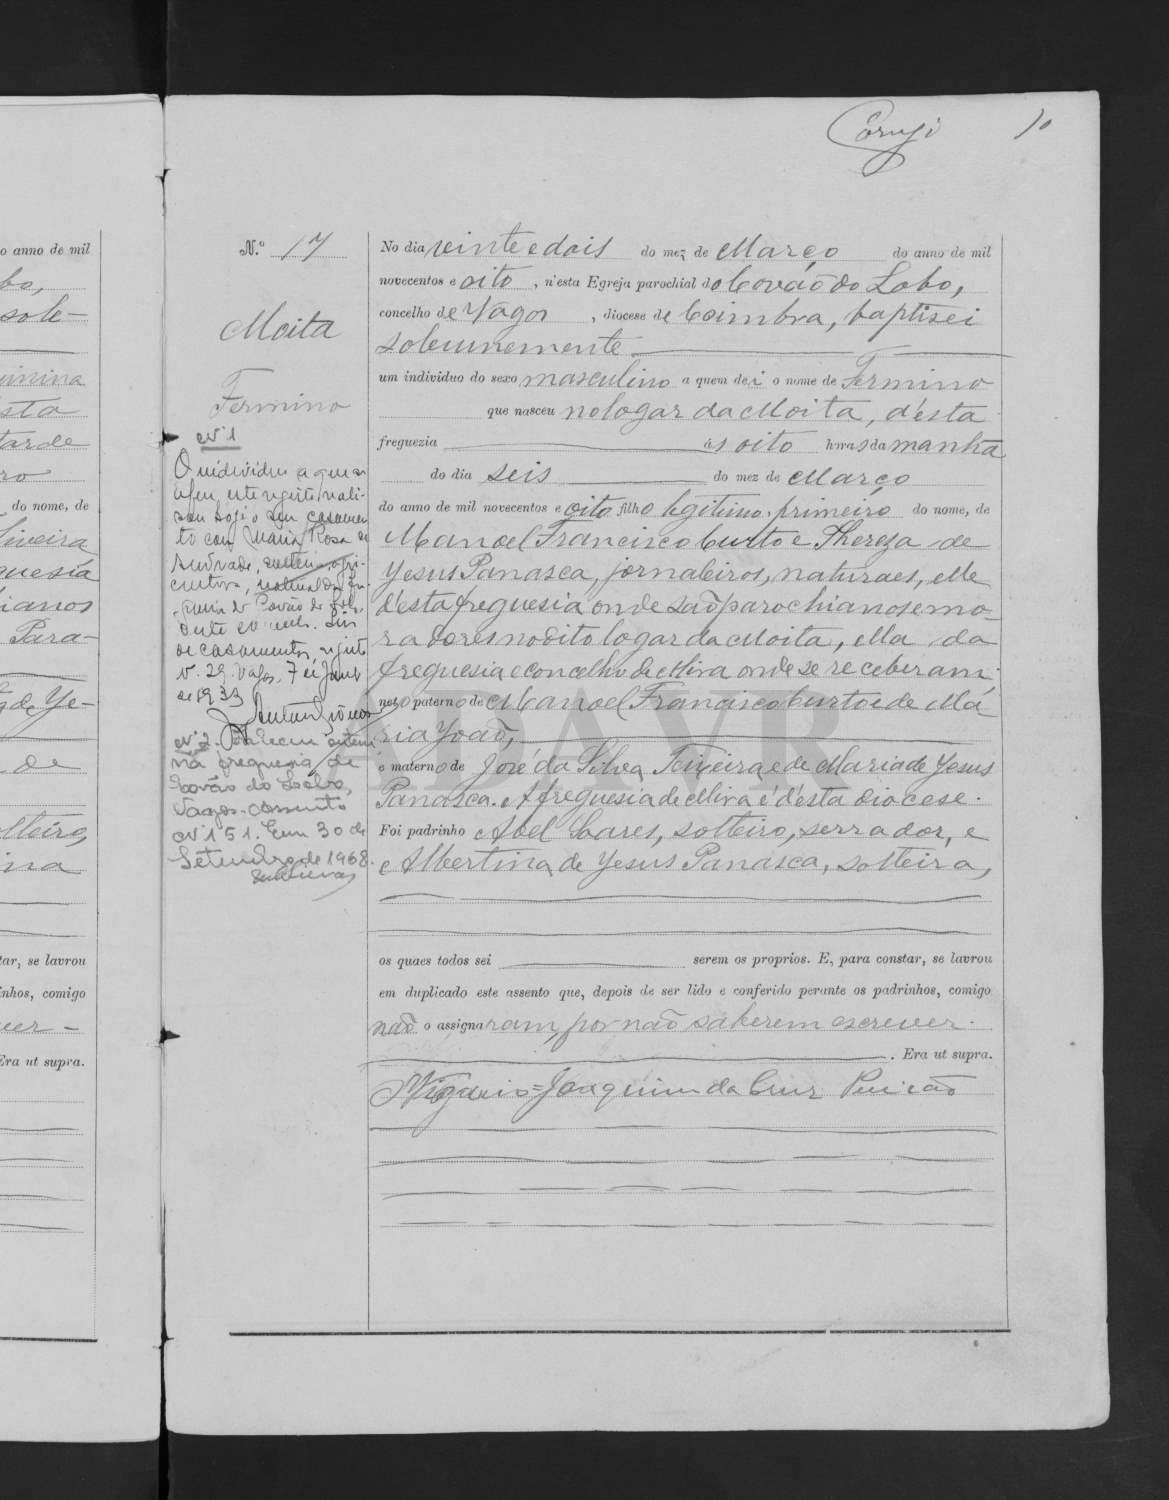 10
o anno de mil
bo,
sole-
inina
sta
tarde
ro
do nome, de
liveira
guesia
ianos
Para-
de Ye-
de
olteiro,
ina
tar, se lavrou
inhos, comigo
ver -
Era ut supra.
N.º 17
Moita
Fermino
Nº 1
O individuo a quem
este registo reali-
sou hoje o seu casamen
to com Maria Rosa de
Andrade, solteira, agri-
cultora, natural da fre-
guesia de Covão do Lobo,
de casamentos, registo
nº 29. Vagos, 7 de
de 1933
Nº 2. Faleceu ontem
na freguesia de
Covão do Lobo,
Vagos. Assento
Nº 151. Em 30 de
Setembro de 1968.
No dia vinte e dois do mez de Março do anno de mil
novecentos e oito, n'esta Egreja parochial do Covão do Lobo,
concelho de Vagos, diocese de Coimbra, baptisei
solemnemente
um individuo do sexo masculino a quem dei o nome de Fermino
que nasceu no logar da Moita, d'esta
freguezia ás oito horas da manhã
do dia seis do mez de Março
do anno de mil novecentos e oito filho legitimo. primeiro do nome, de
Manoel Francisco Curto e Thereza de
Yesus Panasca, jornaleiros, naturaes, elle
d'esta freguesia onde são parochianos e mo-
radores no dito logar da Moita, ella da
freguesia e concelho de Mira onde se receberam.
neto paterno de Manoel Francisco Curto e de Ma-
ria João,
e materno de José da Silva Teixeira e de Maria de Yesus
Panasca. A freguesia de Mira é d'esta diocese.
Foi padrinho Abel Soares, solteiro, serrador, e
e Albertina de Yesus Panasca, solteira,
os quaes todos sei serem os proprios. E, para constar, se lavrou
em duplicado este assento que, depois de ser lido e conferido perante os padrinhos, comigo
não o assignaram, por não saberem escrever.
. Era ut supra.
O Vigario = Joaquim da Cruz
ADAVR